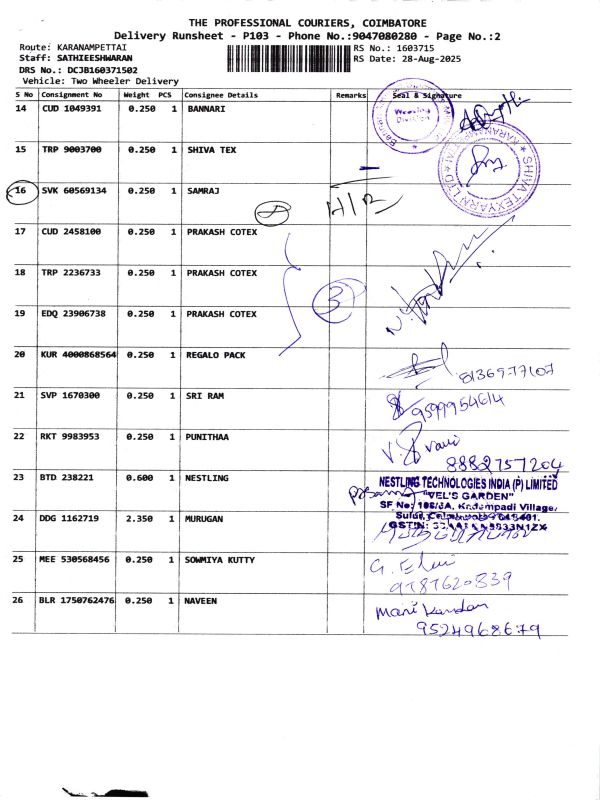 THE PROFESSIONAL COURIERS, COIMBATORE
Delivery Runsheet - P103 - Phone No.:9047080280 - Page No.:2
Route: KARANAMPETTAI RS No.: 1603715
Staff: SATHIEESHWARAN RS Date: 28-Aug-2025
DRS No.: DCJB160371502
Vehicle: Two Wheeler Delivery
S No Consignment No Weight PCS Consignee Details Remarks Seal & Signature
14 CUD 1049391 0.250 1 BANNARI
Weaving
Division
15 TRP 9003700 0.250 1 SHIVA TEX
SHIVA TEXYARN LTD
16 SVK 60569134 0.250 1 SAMRAJ
17 CUD 2458100 0.250 1 PRAKASH COTEX
18 TRP 2236733 0.250 1 PRAKASH COTEX
3
19 EDQ 23906738 0.250 1 PRAKASH COTEX
20 KUR 4000868564 0.250 1 REGALO PACK
8136977107
21 SVP 1670300 0.250 1 SRI RAM
9599954614
22 RKT 9983953 0.250 1 PUNITHAA
8882757204
23 BTD 238221 0.600 1 NESTLING
NESTLING TECHNOLOGIES INDIA (P) LIMITED
"VEL'S GARDEN"
Kadampadi Village,
24 DDG 1162719 2.350 1 MURUGAN
25 MEE 530568456 0.250 1 SOWMIYA KUTTY
9787620839
26 BLR 1750762476 0.250 1 NAVEEN
Mani Kandan
9524968679